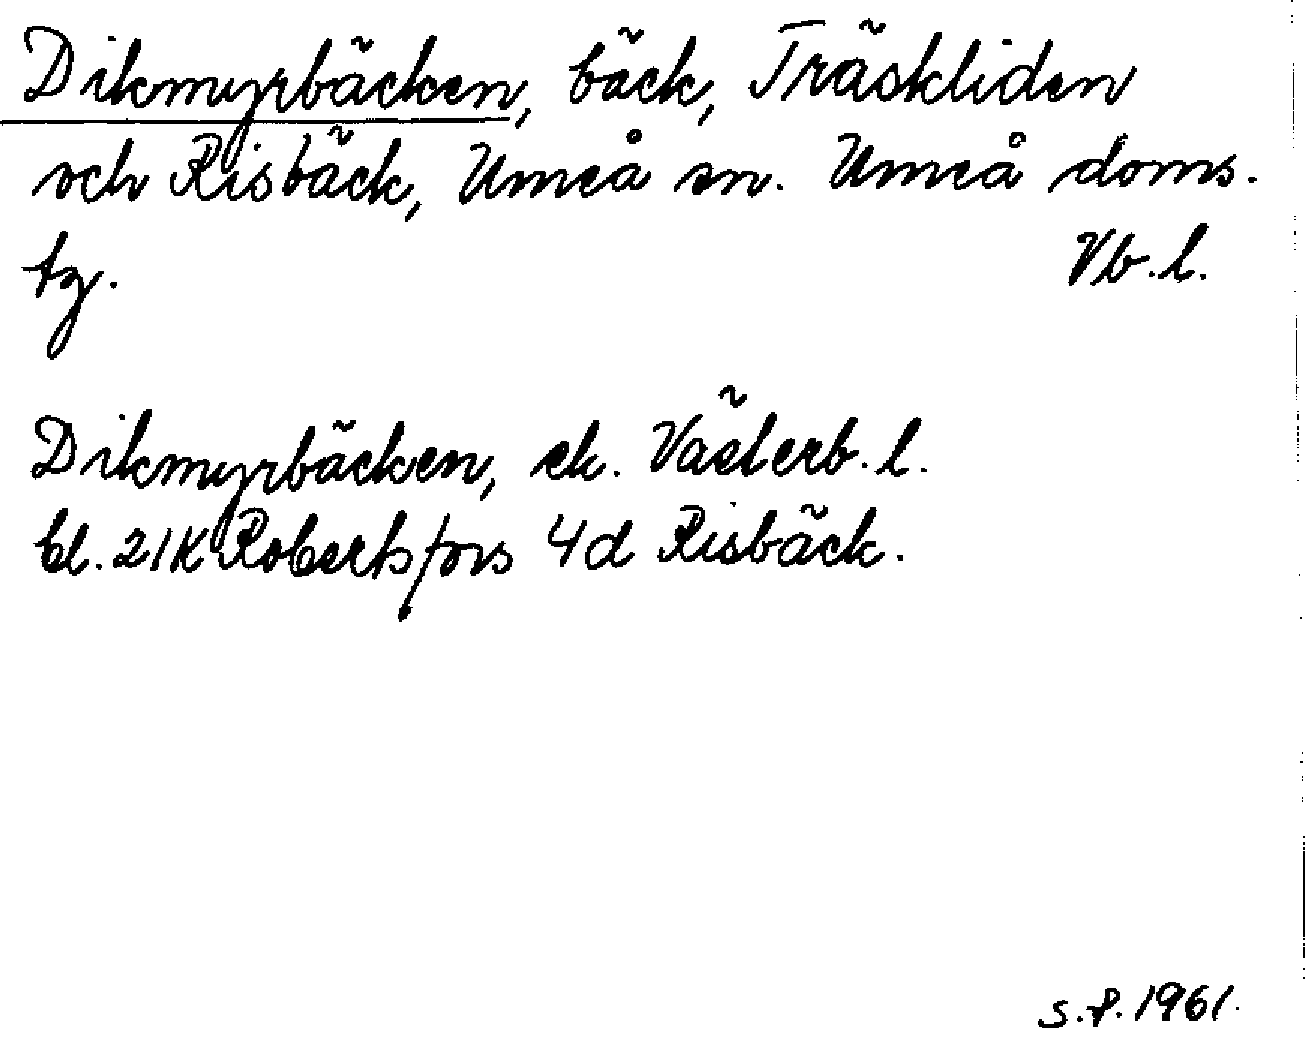 Dikmyrbäcken, bäck, Träskliden
och Risbäck, Umeå sn. Umeå doms.
tg. Vb.l.
Dikmyrbäcken, ek. Västerb.l.
bl. 21K Robertsfors 4d Risbäck.
S.f. 1961.